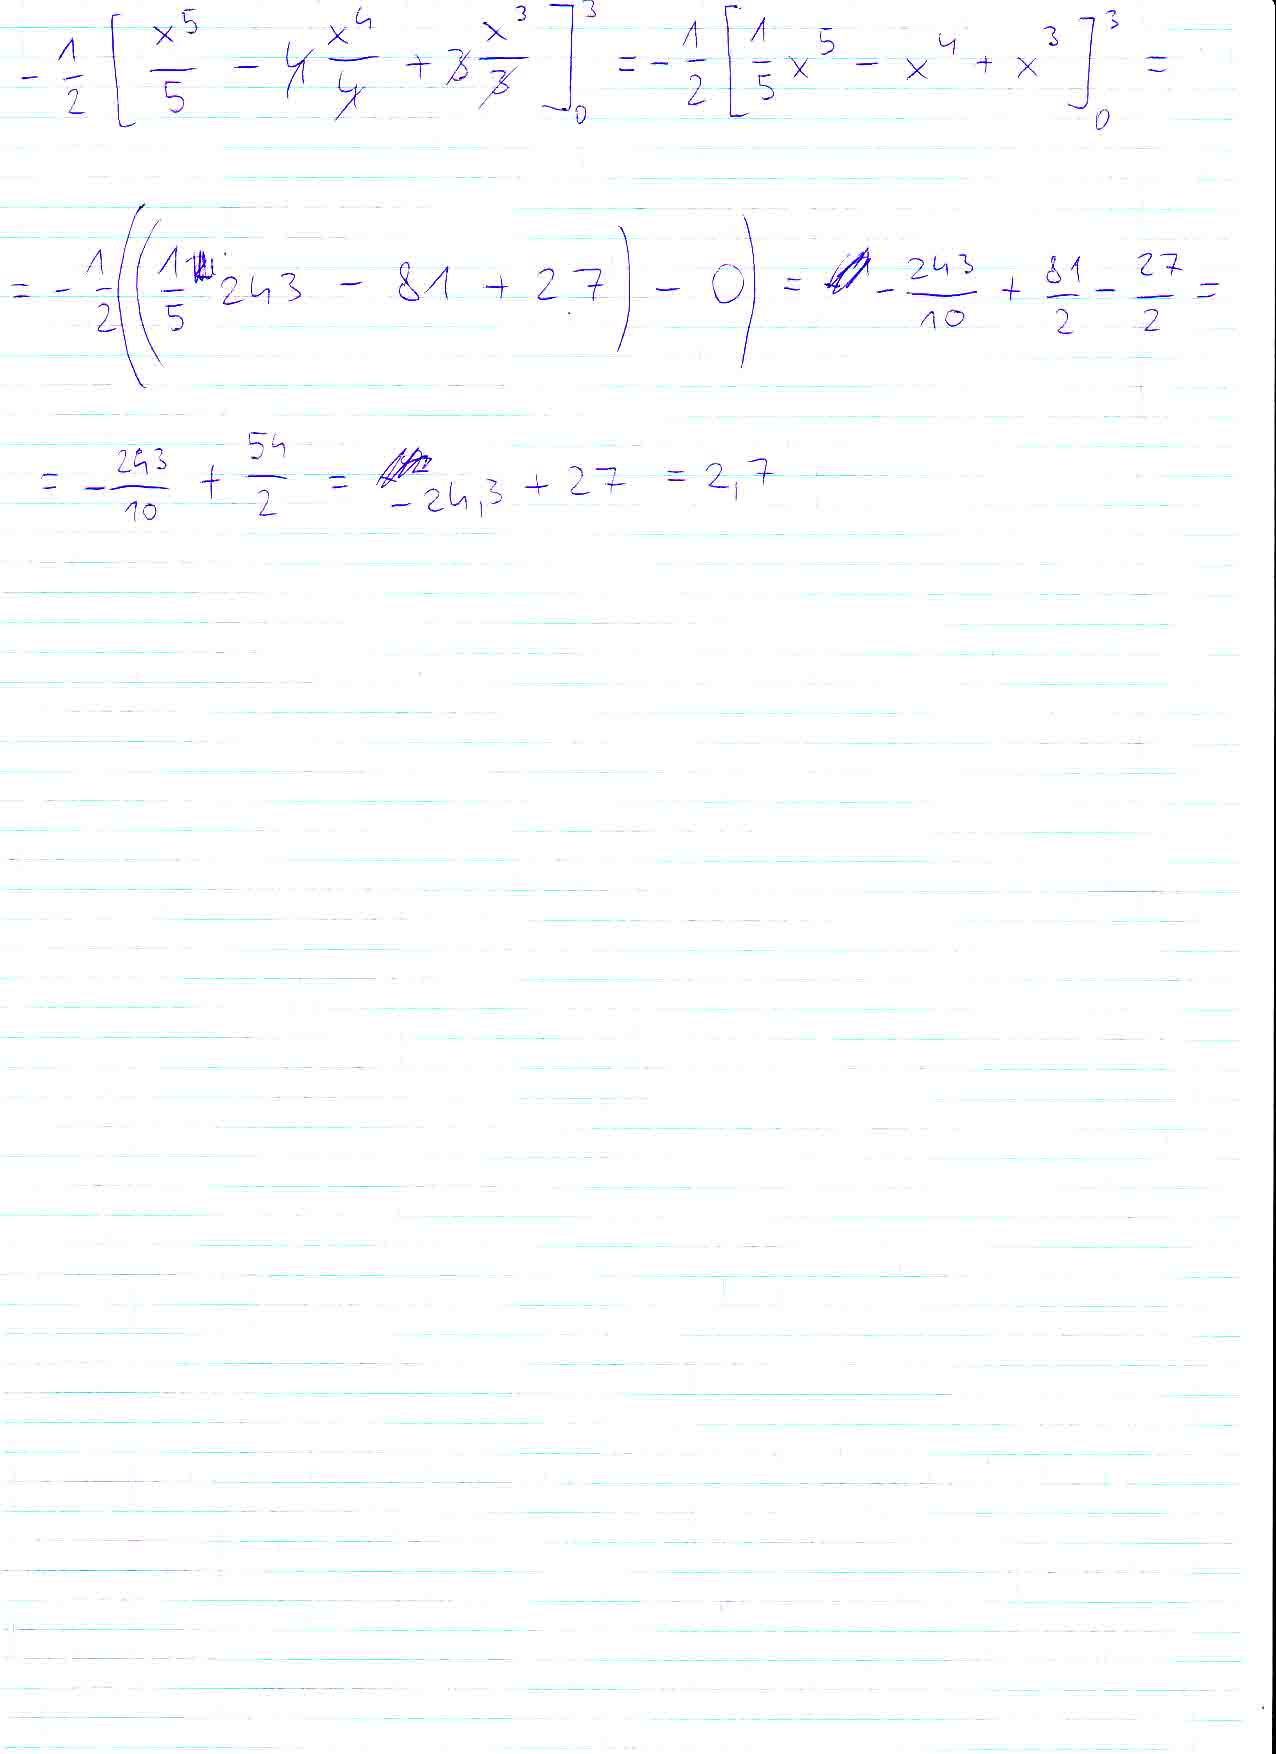 - 1/2 [ x^5/5 - 4 x^4/4 + 3 x^3/3 ]_0^3 = - 1/2 [ 1/5 x^5 - x^4 + x^3 ]_0^3 =
= - 1/2 ( ( 1/5 · 243 - 81 + 27 ) - 0 ) = - 243/10 + 81/2 - 27/2 =
= - 243/10 + 54/2 = -24,3 + 27 = 2,7